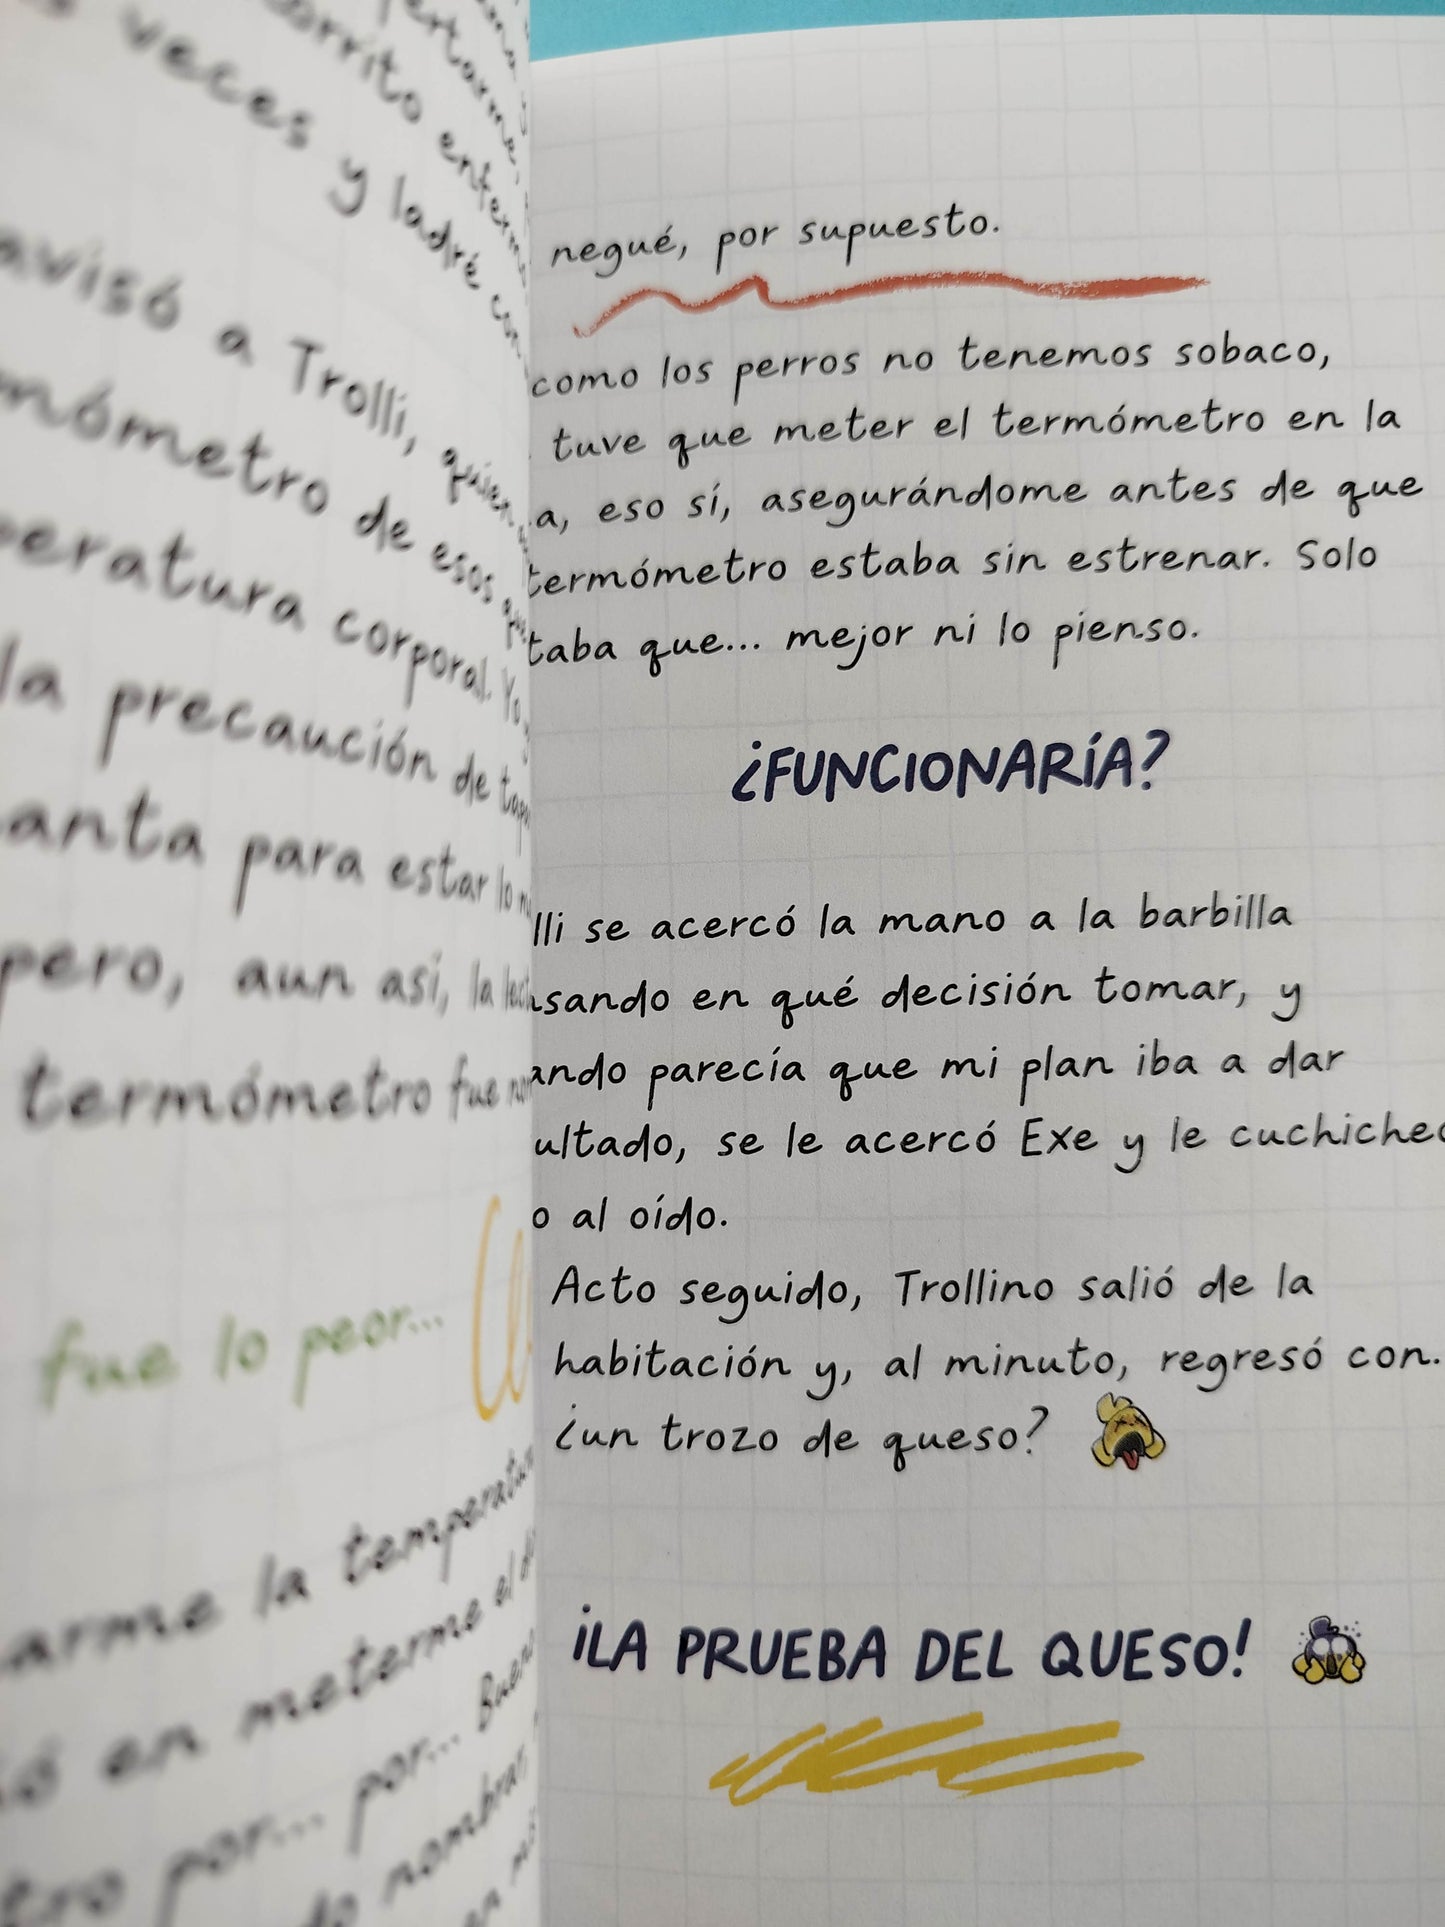 veces y ladré
avisó a Trolli, quien
termómetro de esos
corporal. Yo
la precaución de
para estar lo
pero, aun así, la
termómetro fue
fue lo peor...
la temperatura
en meterme el
por... por... Bueno
nombrar,
negué, por supuesto.
como los perros no tenemos sobaco,
tuve que meter el termómetro en la
a, eso sí, asegurándome antes de que
termómetro estaba sin estrenar. Solo
taba que... mejor ni lo pienso.
¿FUNCIONARÍA?
lli se acercó la mano a la barbilla
sando en qué decisión tomar, y
ando parecía que mi plan iba a dar
ultado, se le acercó Exe y le cuchicheó
o al oído.
Acto seguido, Trollino salió de la
habitación y, al minuto, regresó con.
¿un trozo de queso?
¡LA PRUEBA DEL QUESO!